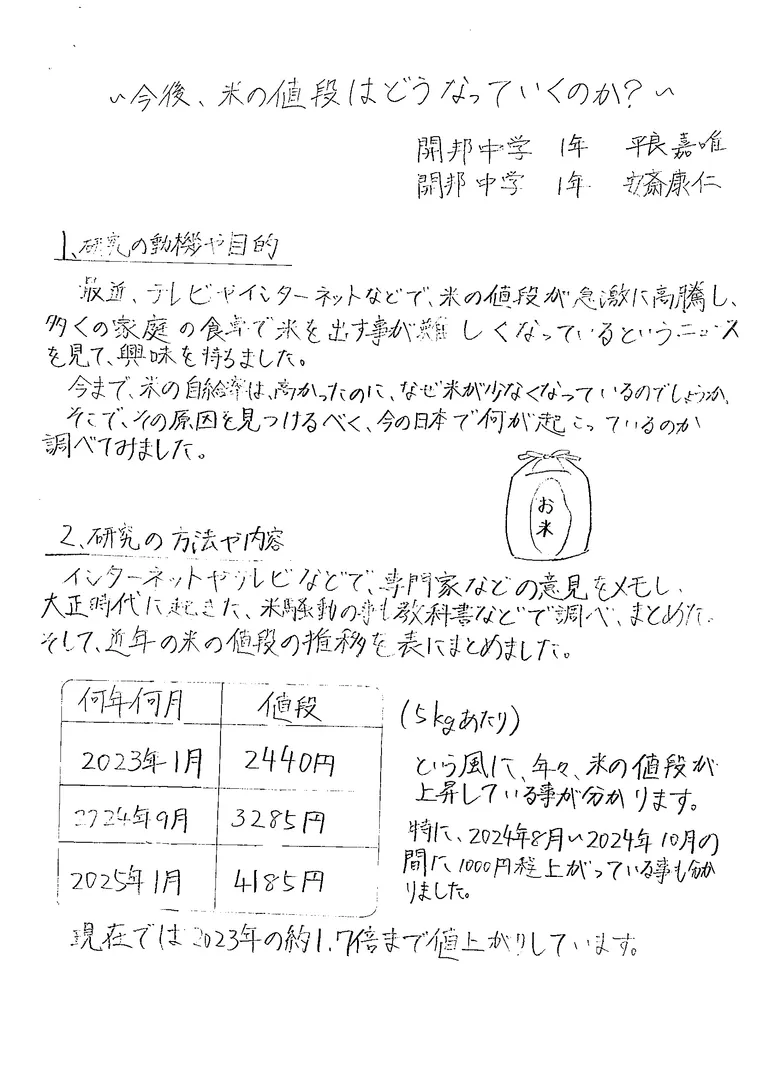 ~今後、米の値段はどうなっていくのか?~
開邦中学 1年 平良嘉唯
開邦中学 1年 安斎康仁
1、研究の動機や目的
最近、テレビやインターネットなどで、米の値段が急激に高騰し、
多くの家庭の食卓で米を出す事が難しくなっているというニュース
を見て、興味を持ちました。
今まで、米の自給率は、高かったのに、なぜ米が少なくなっているのでしょうか。
そこで、その原因を見つけるべく、今の日本で何が起こっているのか
調べてみました。
お米
2、研究の方法や内容
インターネットやテレビなどで、専門家などの意見をメモし、
大正時代に起きた、米騒動の事も教科書などで調べ、まとめた。
そして、近年の米の値段の推移を表にまとめました。
何年何月 値段
(5kgあたり)
2023年1月 2440円
2024年9月 3285円
2025年1月 4185円
という風に、年々、米の値段が
上昇している事が分かります。
特に、2024年8月~2024年10月の
間に1000円程上がっている事も分か
りました。
現在では2023年の約1.7倍まで値上がりしています。